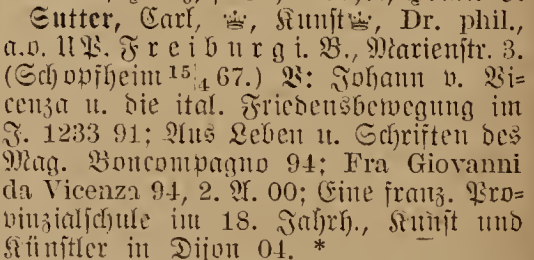 Sutter, Carl, ♕, Kunst♕, Dr. phil.,
a.o. UP. Freiburg i. B., Marienstr. 3.
(Schopfheim 15/4 67.) V: Johann v. Vi=
cenza u. die ital. Friedensbewegung im
J. 1233 91; Aus Leben u. Schriften des
Mag. Boncompagno 94; Fra Giovanni
da Vicenza 94, 2. A. 00; Eine franz. Pro=
vinzialschule im 18. Jahrh., Kunst und
Künstler in Dijon 04. *